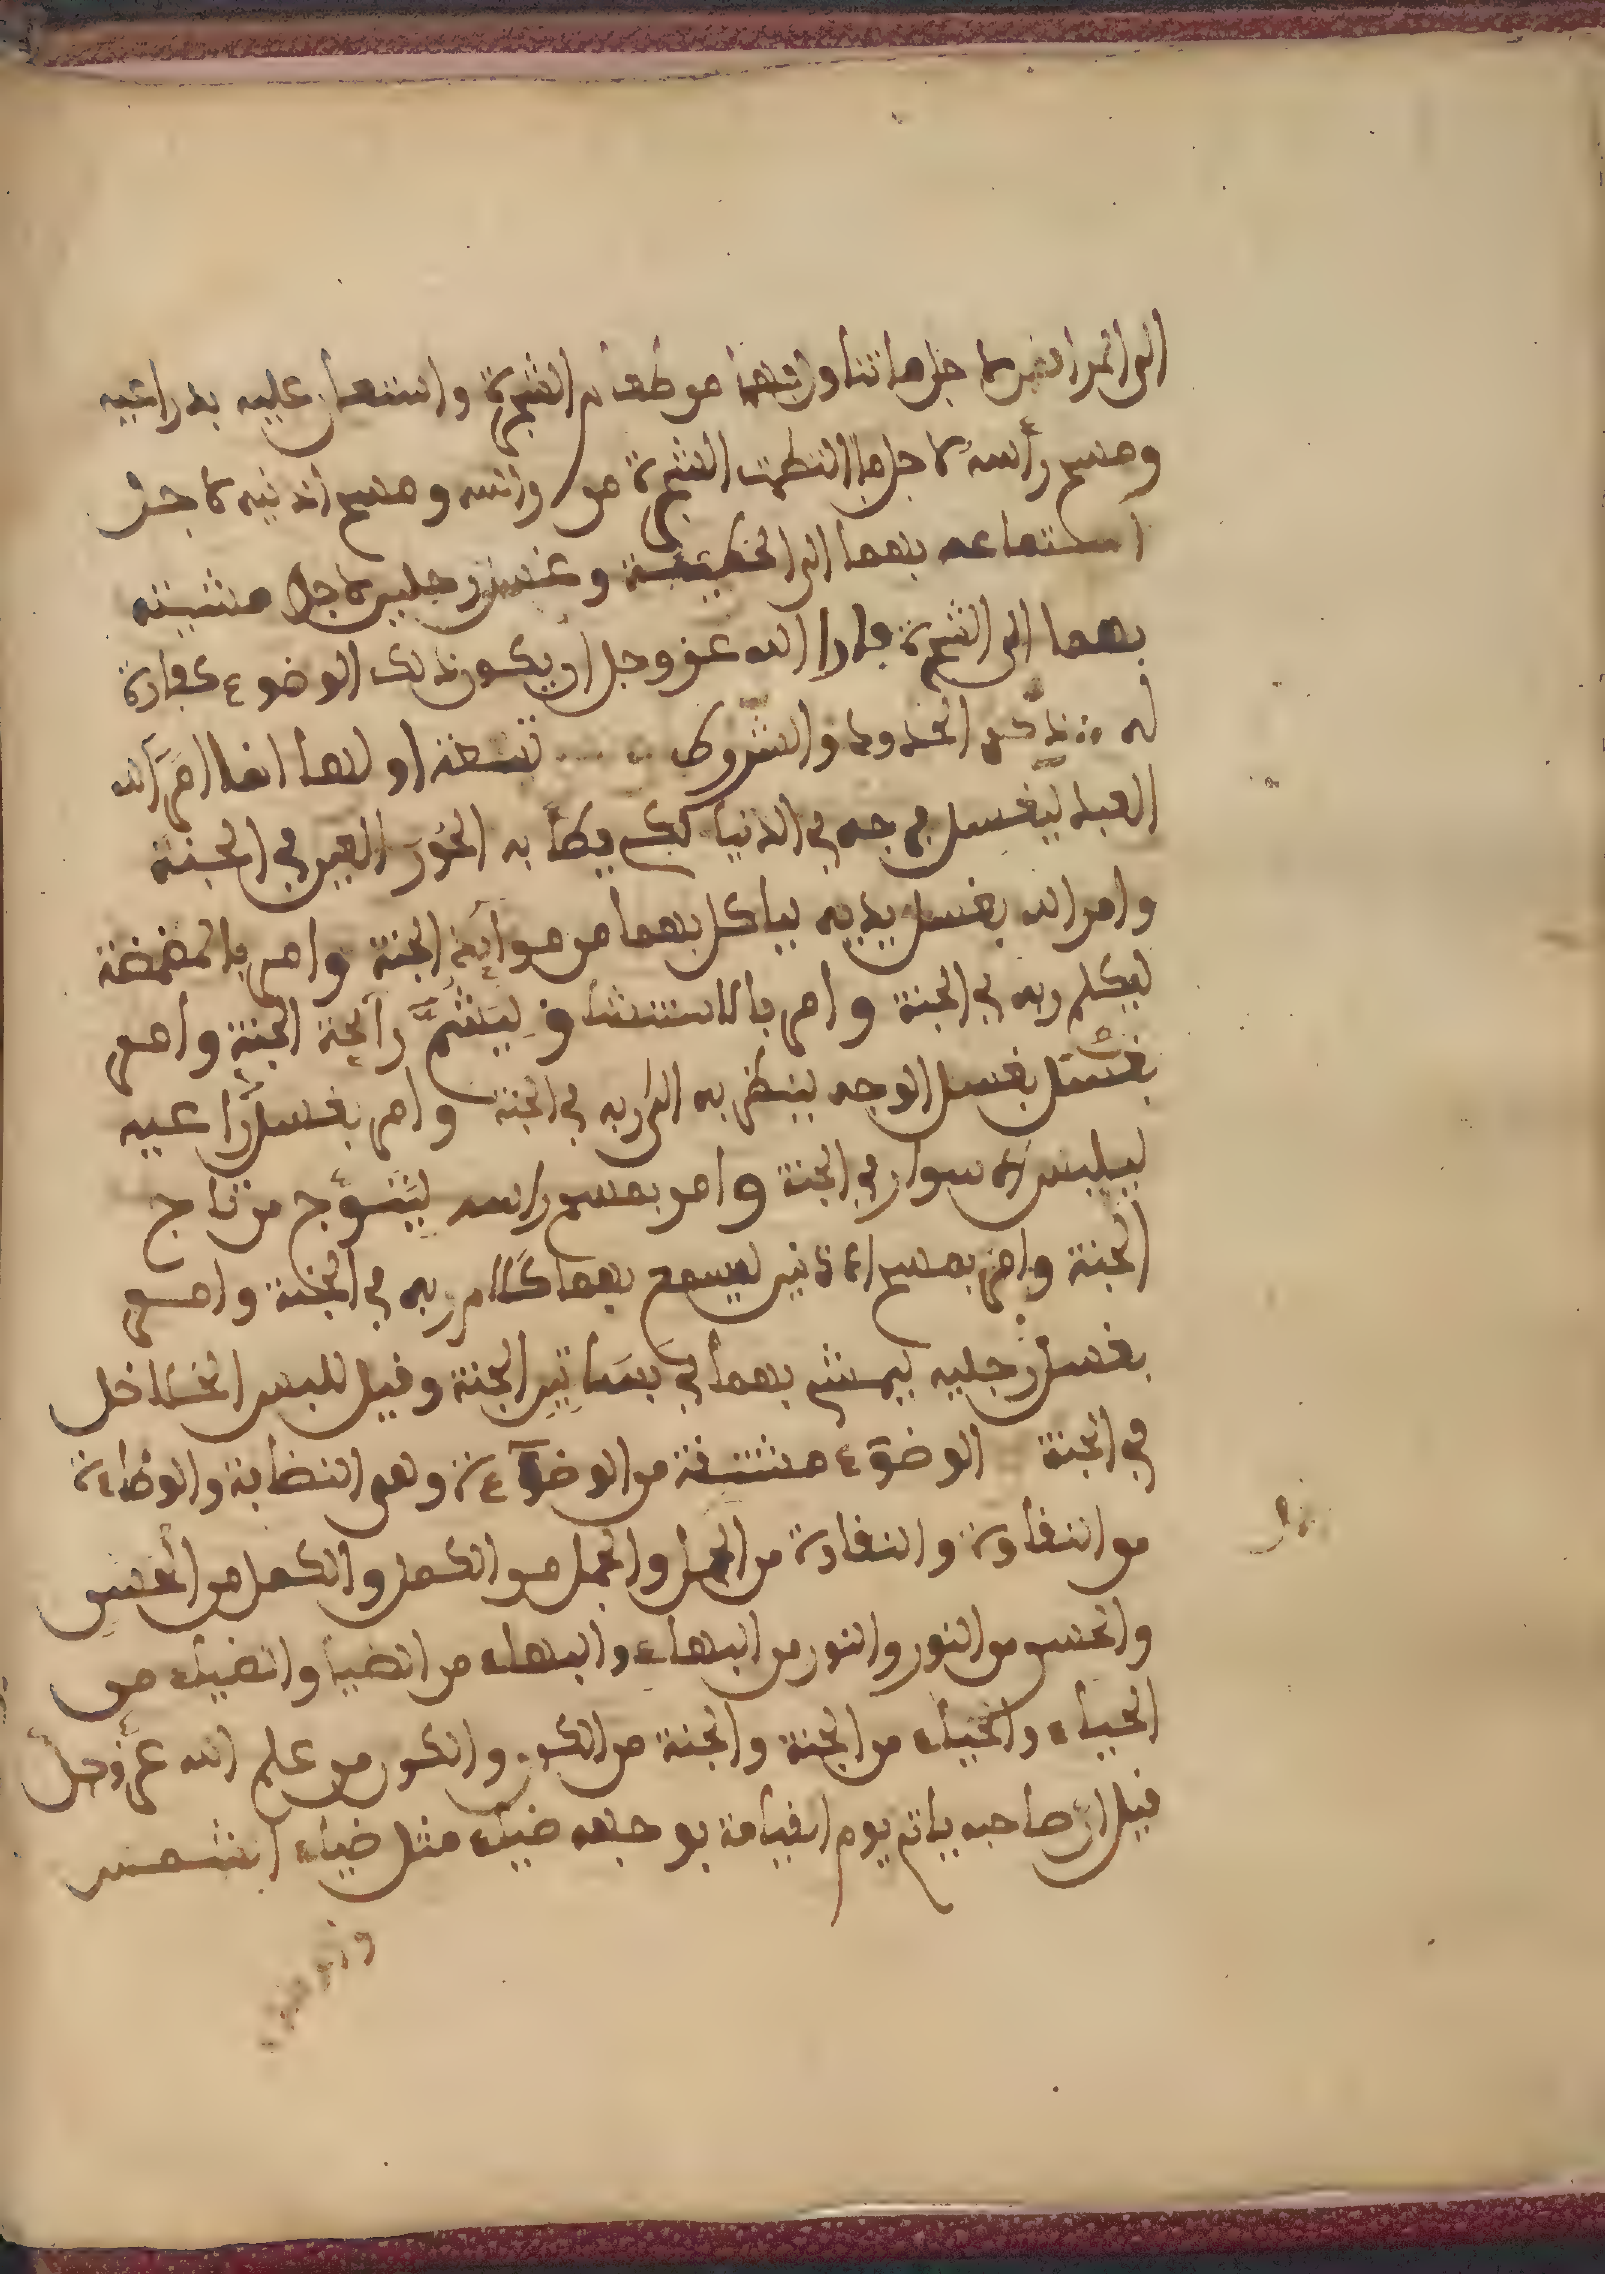 الى المرافق لاجل ما تناول بهما من طعام الشجرة واشتمل عليه بذراعيه
ومسح رأسه لاجل ما التطمت الشجرة من راسه ومسح اذنيه لاجل
استماعه بهما الى الخطيئة وغسل رجليه لاجل مشيته
بهما الى الشجرة فاراد الله عز وجل ان يكون ذلك الوضوء كفارة
له ذكر الحدود والشروط تسعة اولها انما امر الله
العبد ليغسل فرجه في الدنيا لكي يطأ به الحور العين في الجنة
وامر الله بغسل يديه لياكل بهما من موائد الجنة وامر بالمضمضة
ليكلم ربه في الجنة وامر بالاستنشاق ليشم رائحة الجنة وامر
بغسل بغسل الوجه لينظر به الى ربه في الجنة وامر بغسل ذراعيه
ليلبس الاسوار في الجنة وامر بمسح راسه ليتوج من تاج
الجنة وامر بمسح الاذنين ليسمع بهما كلام ربه في الجنة وامر
بغسل رجليه ليمشي بهما في بساتين الجنة وقيل للبس الخلاخل
في الجنة الوضوء مشتقة من الوضوءة وهو النظافة والوضاءة
من النقاوة والنقاوة من الجمل والجمل من الكمل والكمل من الحسن
والحسن من النور والنور من البهاء والبهاء من الضيا والضياء من
الحياء والحياء من الجنة والجنة من الكون والكون من علم الله عز وجل
قيل ان صاحبه ياتي يوم القيامة بوجهه ضياء مثل ضياء الشمس